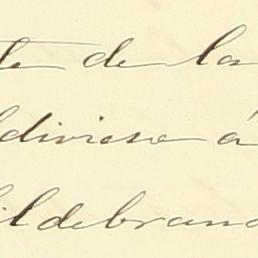 te de la
ldiviese á
ildebrand